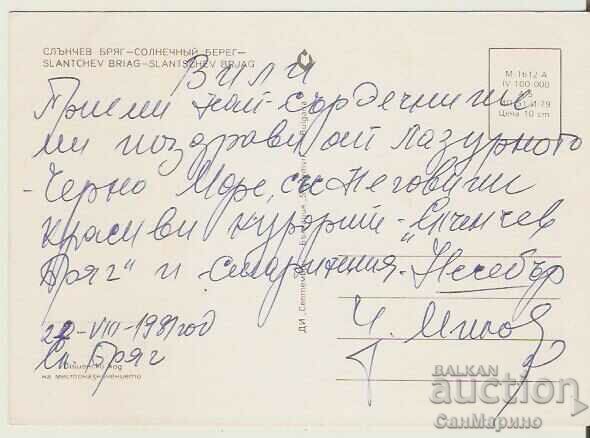 СЛЪНЧЕВ БРЯГ—СОЛНЕЧНЫЙ БЕРЕГ—
SLANTCHEV BRIAG—SLANTSCHEV BRJAG
М-1612-А
IV 100 000
Цена 10 cm
Вили
Приеми най-сърдечните
ми поздрави от лазурното
Черно Море, с неговите
красиви курорти - „Слънчев
Бряг" и старинния - Несебър
22-VIII-1981 год
Сл. Бряг
Пощенски код
на местоназначението
ДИ „Септември"
BALKAN
auction
СанМарино